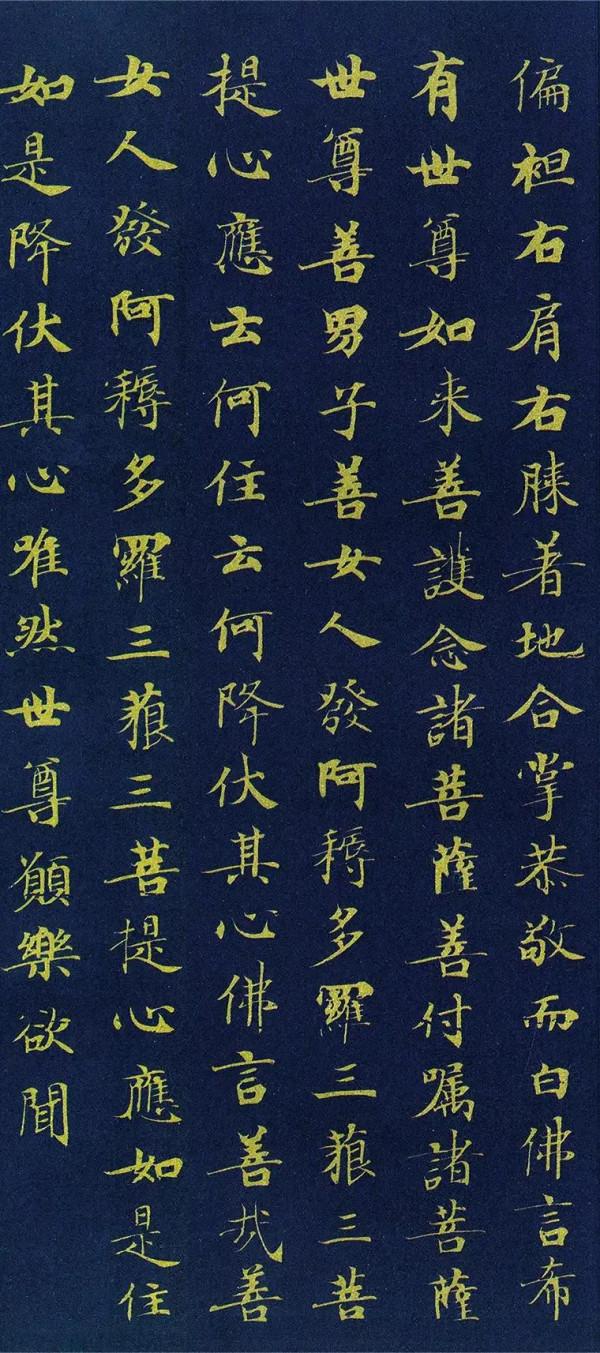 偏袒右肩右膝着地合掌恭敬而白佛言希
有世尊如来善護念諸菩薩善付嘱諸菩薩
世尊善男子善女人發阿耨多羅三藐三菩
提心應云何住云何降伏其心佛言善哉善
女人發阿耨多羅三藐三菩提心應如是住
如是降伏其心唯然世尊願樂欲聞